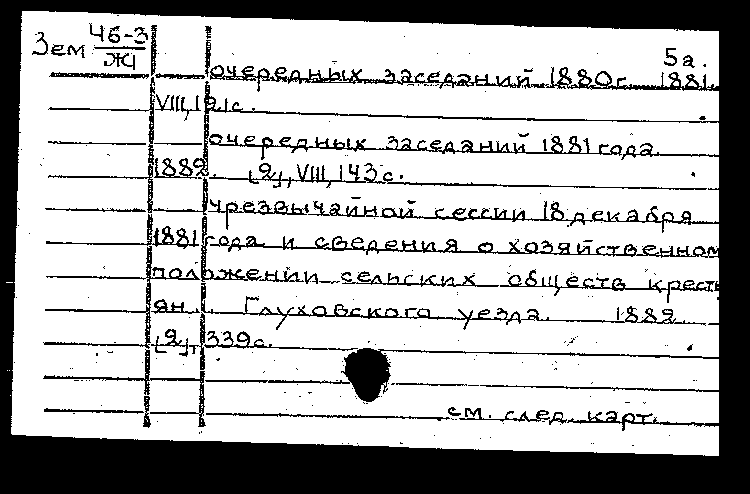 Зем 46-3/Ж1 5а.
очередных заседаний 1880г. 1881.
VIII, 121с.
очередных заседаний 1881 года.
1882. [2], VIII, 143 с.
чрезвычайной сессии 18 декабря
1881 года и сведения о хозяйственном
положении сельских обществ кресть
ян... Глуховского уезда. 1882.
[2], 339с.
см. след. карт.